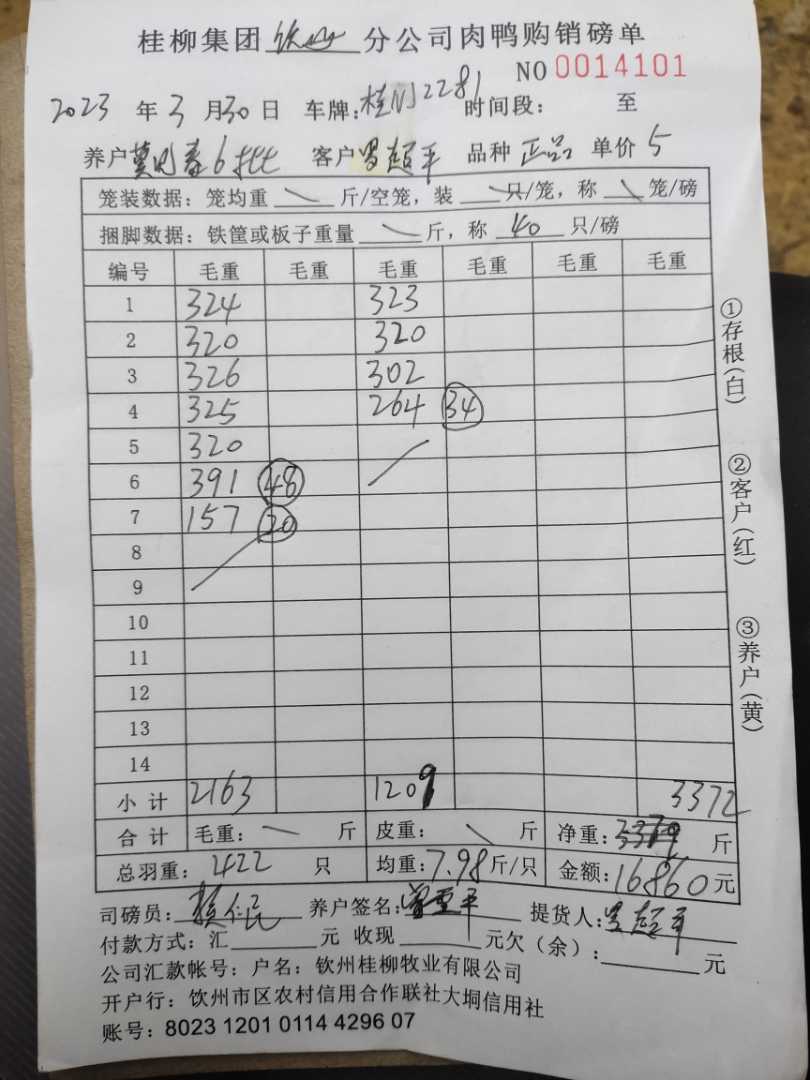 桂柳集团 钦州 分公司肉鸭购销磅单
NO 0014101
2023 年 3 月 30 日 车牌: 桂N 2281 时间段: 至
养户 6批 客户 超平 品种 正品 单价 5
笼装数据: 笼均重 斤/空笼, 装 只/笼, 称 笼/磅
捆脚数据: 铁筐或板子重量 斤, 称 40 只/磅
编号 毛重 毛重 毛重 毛重 毛重 毛重
1 324 323
2 320 320
3 326 302
4 325 264 34
5 320
6 391 48
7 157 20
8
9
10
11
12
13
14
小计 2163 1209 3372
合计 毛重: 斤 皮重: 斤 净重: 斤
总羽重: 422 只 均重: 7.98 斤/只 金额: 16860 元
司磅员: 养户签名: 提货人: 超平
付款方式: 汇 元 收现 元欠(余): 元
公司汇款帐号: 户名: 钦州桂柳牧业有限公司
开户行: 钦州市区农村信用合作联社大垌信用社
账号: 8023 1201 0114 4296 07
①存根(白)
②客户(红)
③养户(黄)